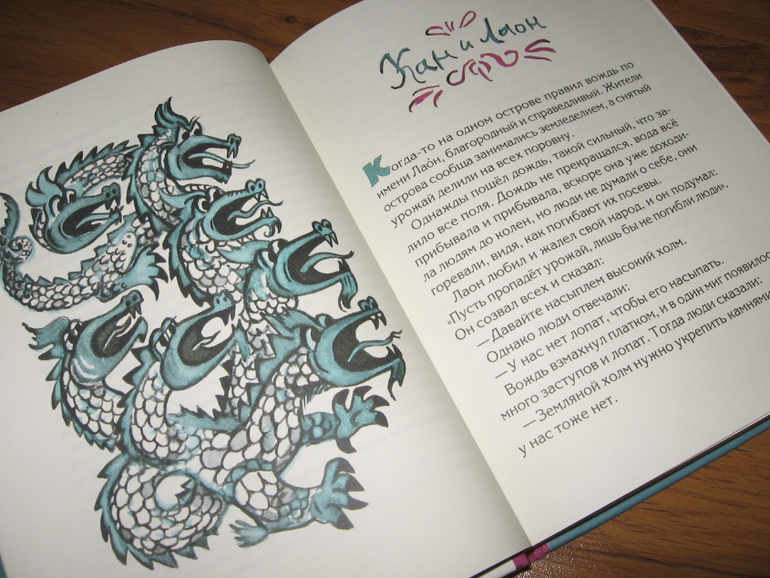 Кан и Лаон
Когда-то на одном острове правил вождь по
имени Лаóн, благородный и справедливый. Жители
острова сообща занимались земледелием, а снятый
урожай делили на всех поровну.
Однажды пошёл дождь, такой сильный, что за-
лило все поля. Дождь не прекращался, вода всё
прибывала и прибывала, вскоре она уже доходи-
ла людям до колен, но люди не думали о себе, они
горевали, видя, как погибают их посевы.
Лаон любил и жалел свой народ, и он подумал:
«Пусть пропадёт урожай, лишь бы не погибли люди».
Он созвал всех и сказал:
— Давайте насыплем высокий холм.
Однако люди отвечали:
— У нас нет лопат, чтобы его насыпать.
Вождь взмахнул платком, и в один миг появилось
много заступов и лопат. Тогда люди сказали:
— Земляной холм нужно укрепить камнями
у нас тоже нет.